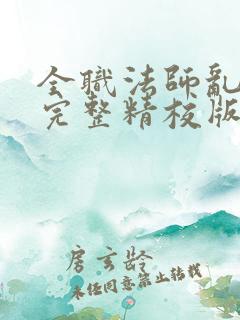 全職法師亂
完整精校版
房玄齡
未经同意禁止转载